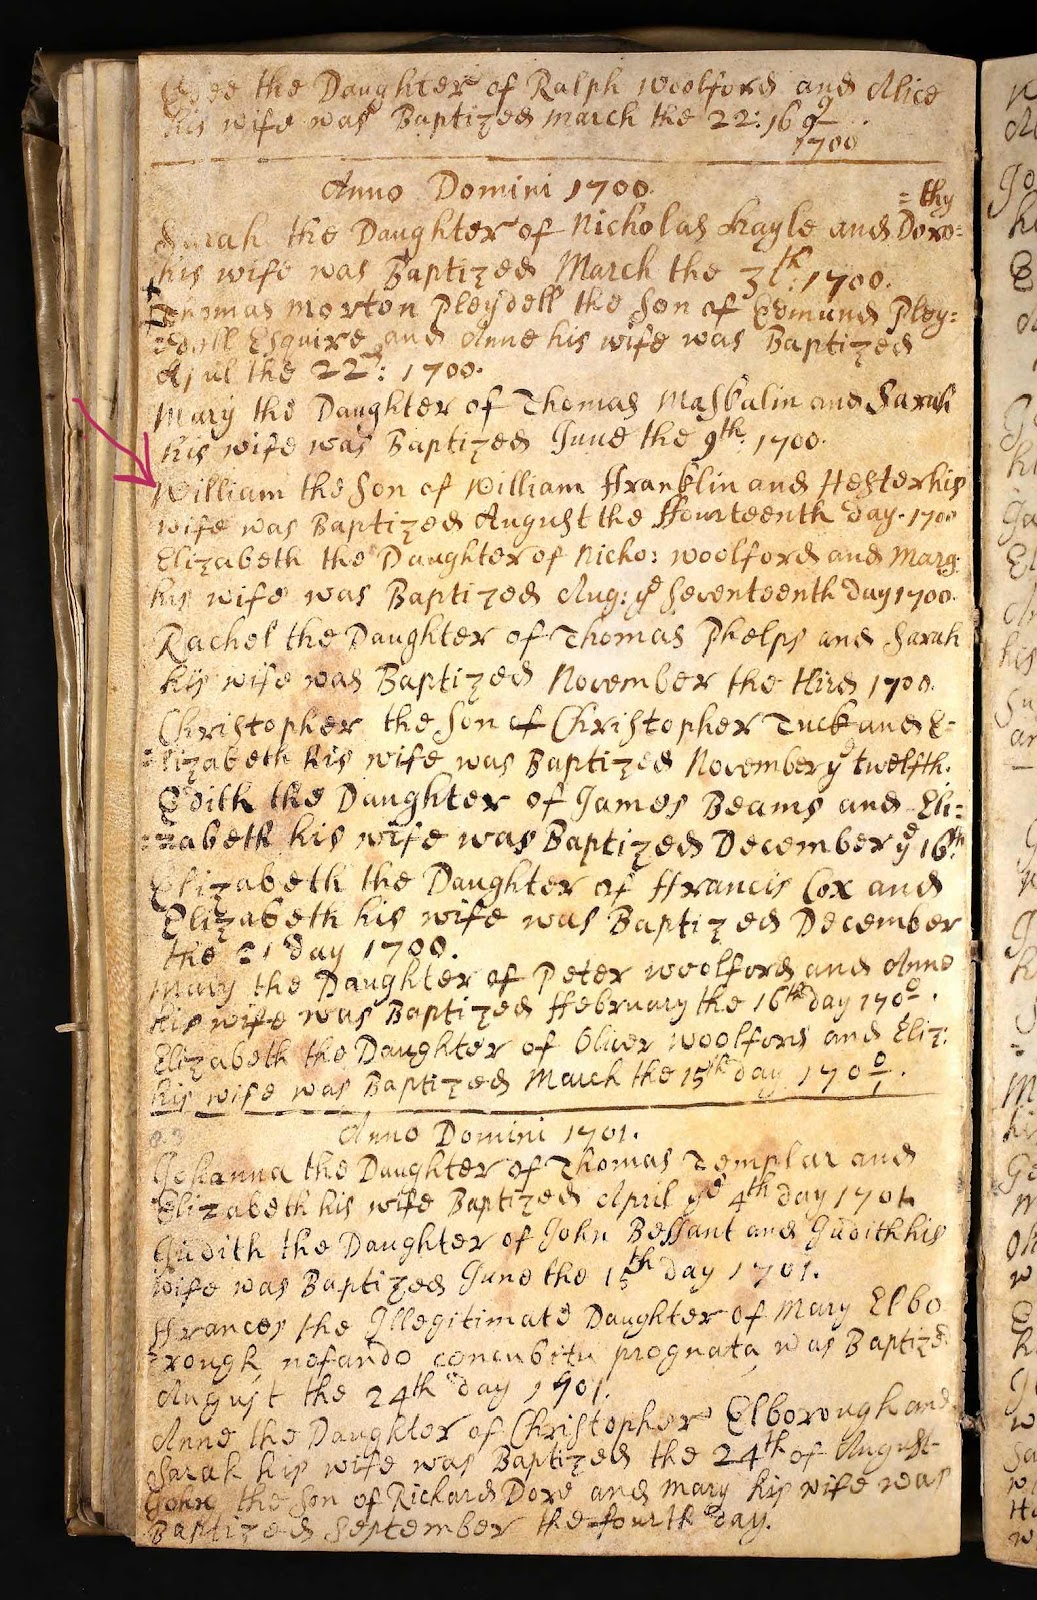 the Daughter of Ralph Woolford and Alice
his wife was Baptized March the 22: 16 99/1700
Anno Domini 1700.
= thy
Sarah the Daughter of Nicholas Kayle and Doro=
his wife was Baptized March the 3th: 1700.
Thomas Morton Pleydell the Son of Edmund Pley:
=dell Esquire and Anne his wife was Baptized
April the 22d: 1700.
Mary the Daughter of Thomas Maskalin and Sarah
his wife was Baptized June the 9th: 1700.
William the Son of William ffranklin and Hester his
wife was Baptized August the ffourteenth day. 1700
Elizabeth the Daughter of Nicho: Woolford and Marg:
his wife was Baptized Aug: ye Seventeenth day 1700.
Rachel the Daughter of Thomas Phelps and Sarah
his wife was Baptized November the third 1700.
Christopher the Son of Christopher Tuck and E=
=lizabeth his wife was Baptized November ye twelfth.
Edith the Daughter of James Beams and Eli=
=zabeth his wife was Baptized December ye 16th.
Elizabeth the Daughter of ffrancis Cox and
Elizabeth his wife was Baptized December
the 21 day 1700.
Mary the Daughter of Peter Woolford and Anne
his wife was Baptized ffebruary the 16th day 1700.
Elizabeth the Daughter of Oliver Woolford and Eliz:
his wife was Baptized March the 15th day 170 0/1.
Anno Domini 1701.
Johanna the Daughter of Thomas Templar and
Elizabeth his wife Baptized April ye 4th day 1701.
Judith the Daughter of John Bessant and Judith his
wife was Baptized June the 15th day 1701.
ffrances the Illegitimate Daughter of Mary Elbo
=rough, nefando concubitu prognata, was Baptized
August the 24th day 1701.
Anne the Daughter of Christopher Elborough and
Sarah his wife was Baptized the 24th of August
John the Son of Richard Dore and Mary his wife was
Baptized September the fourth day.